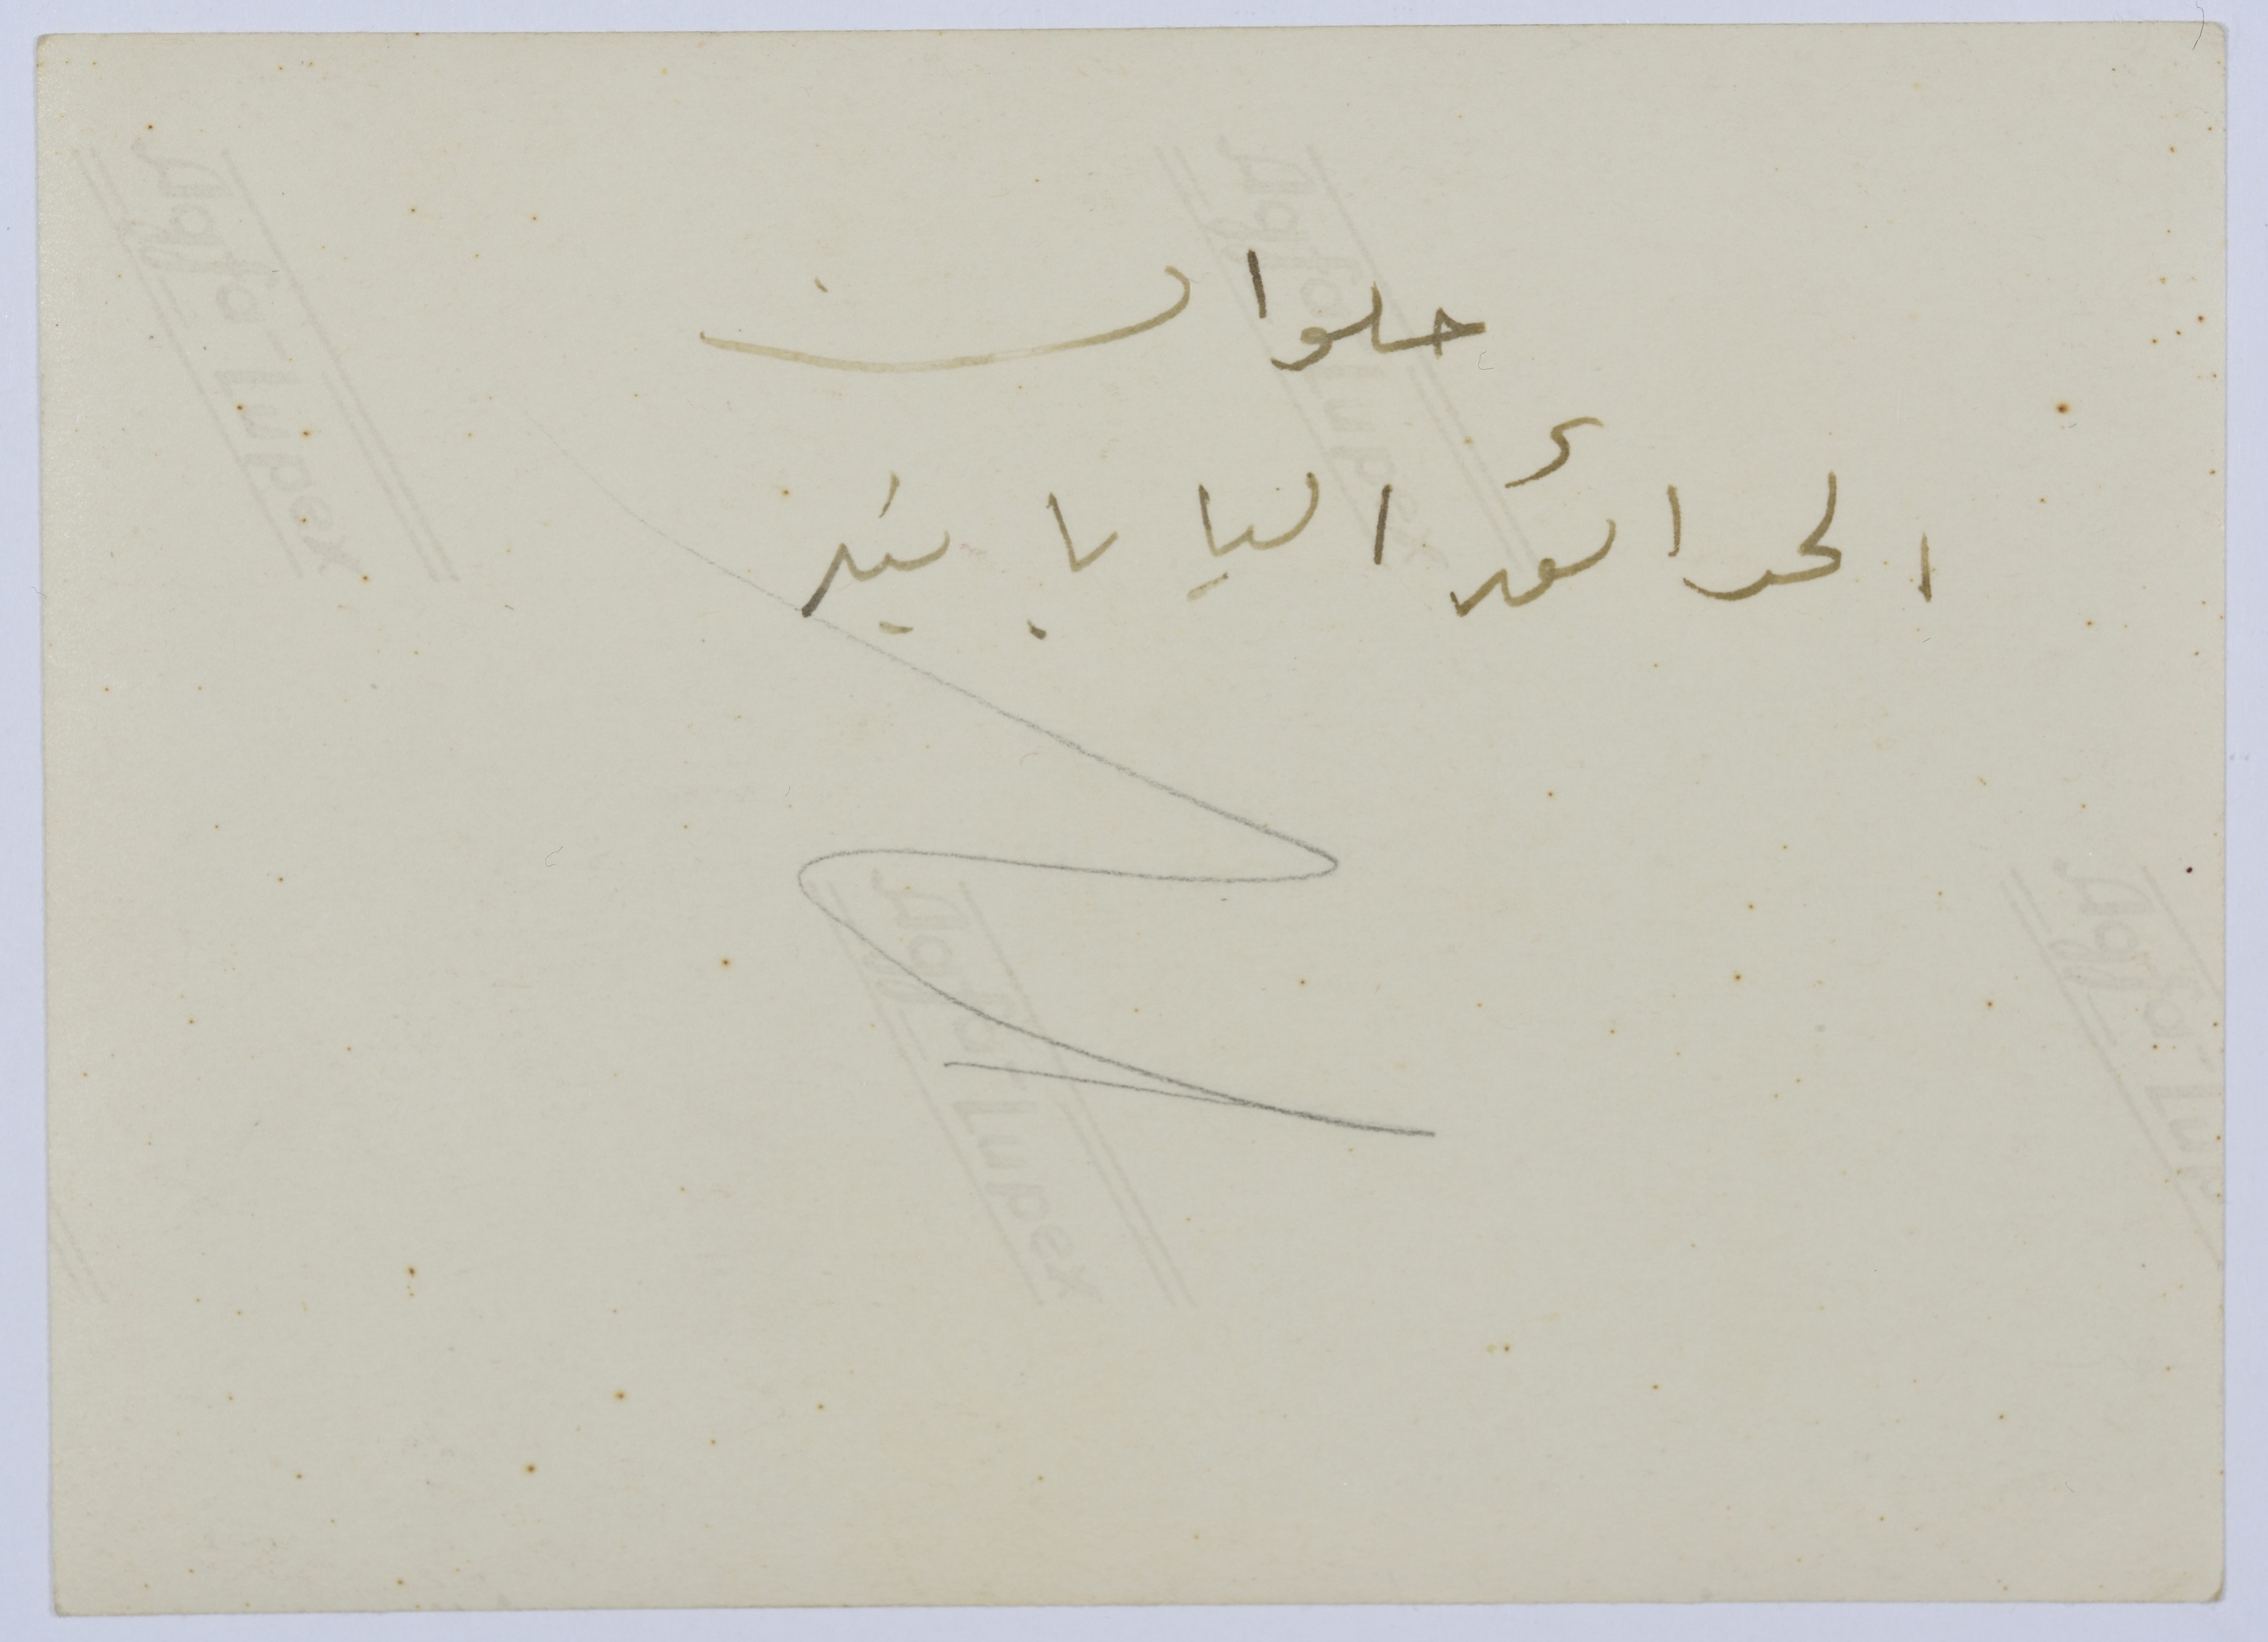 حلوان
الحدائق اليابانية
Agfa-Lupex
Agfa-Lupex
Agfa-Lupex
Agfa-Lup